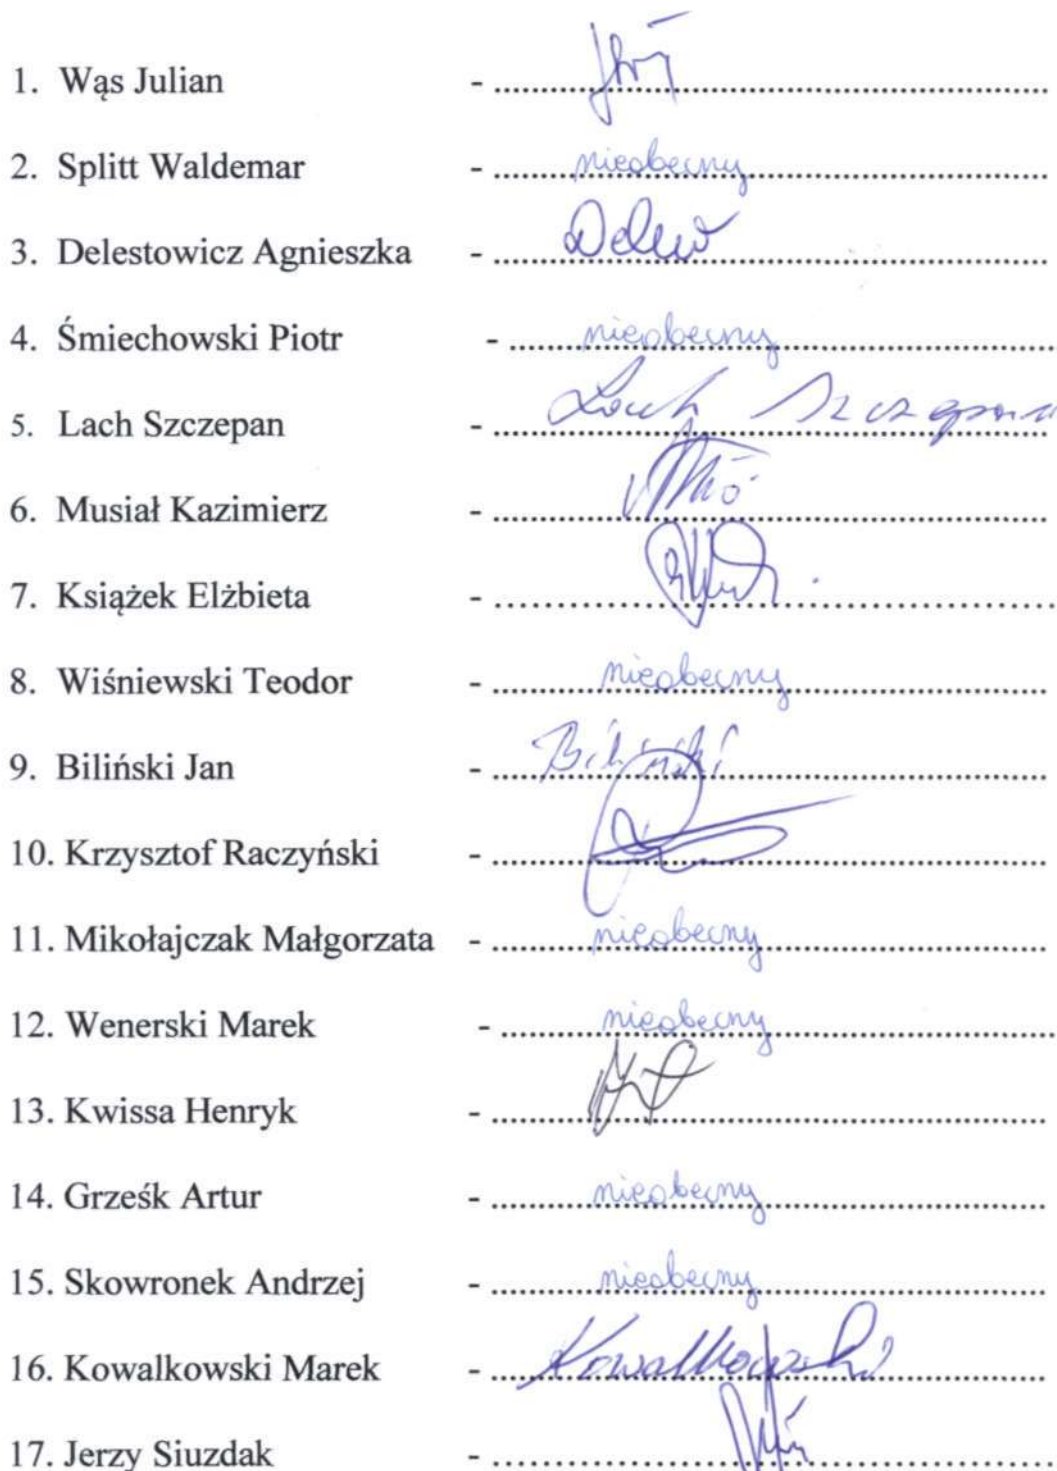 1. Wąs Julian - ........................................
2. Splitt Waldemar - nieobecny
3. Delestowicz Agnieszka - ........................................
4. Śmiechowski Piotr - nieobecny
5. Lach Szczepan - Lach Szczepan
6. Musiał Kazimierz - ........................................
7. Książek Elżbieta - ........................................
8. Wiśniewski Teodor - nieobecny
9. Biliński Jan - Biliński
10. Krzysztof Raczyński - ........................................
11. Mikołajczak Małgorzata - nieobecny
12. Wenerski Marek - nieobecny
13. Kwissa Henryk - ........................................
14. Grześk Artur - nieobecny
15. Skowronek Andrzej - nieobecny
16. Kowalkowski Marek - Kowalkowski
17. Jerzy Siuzdak - ........................................